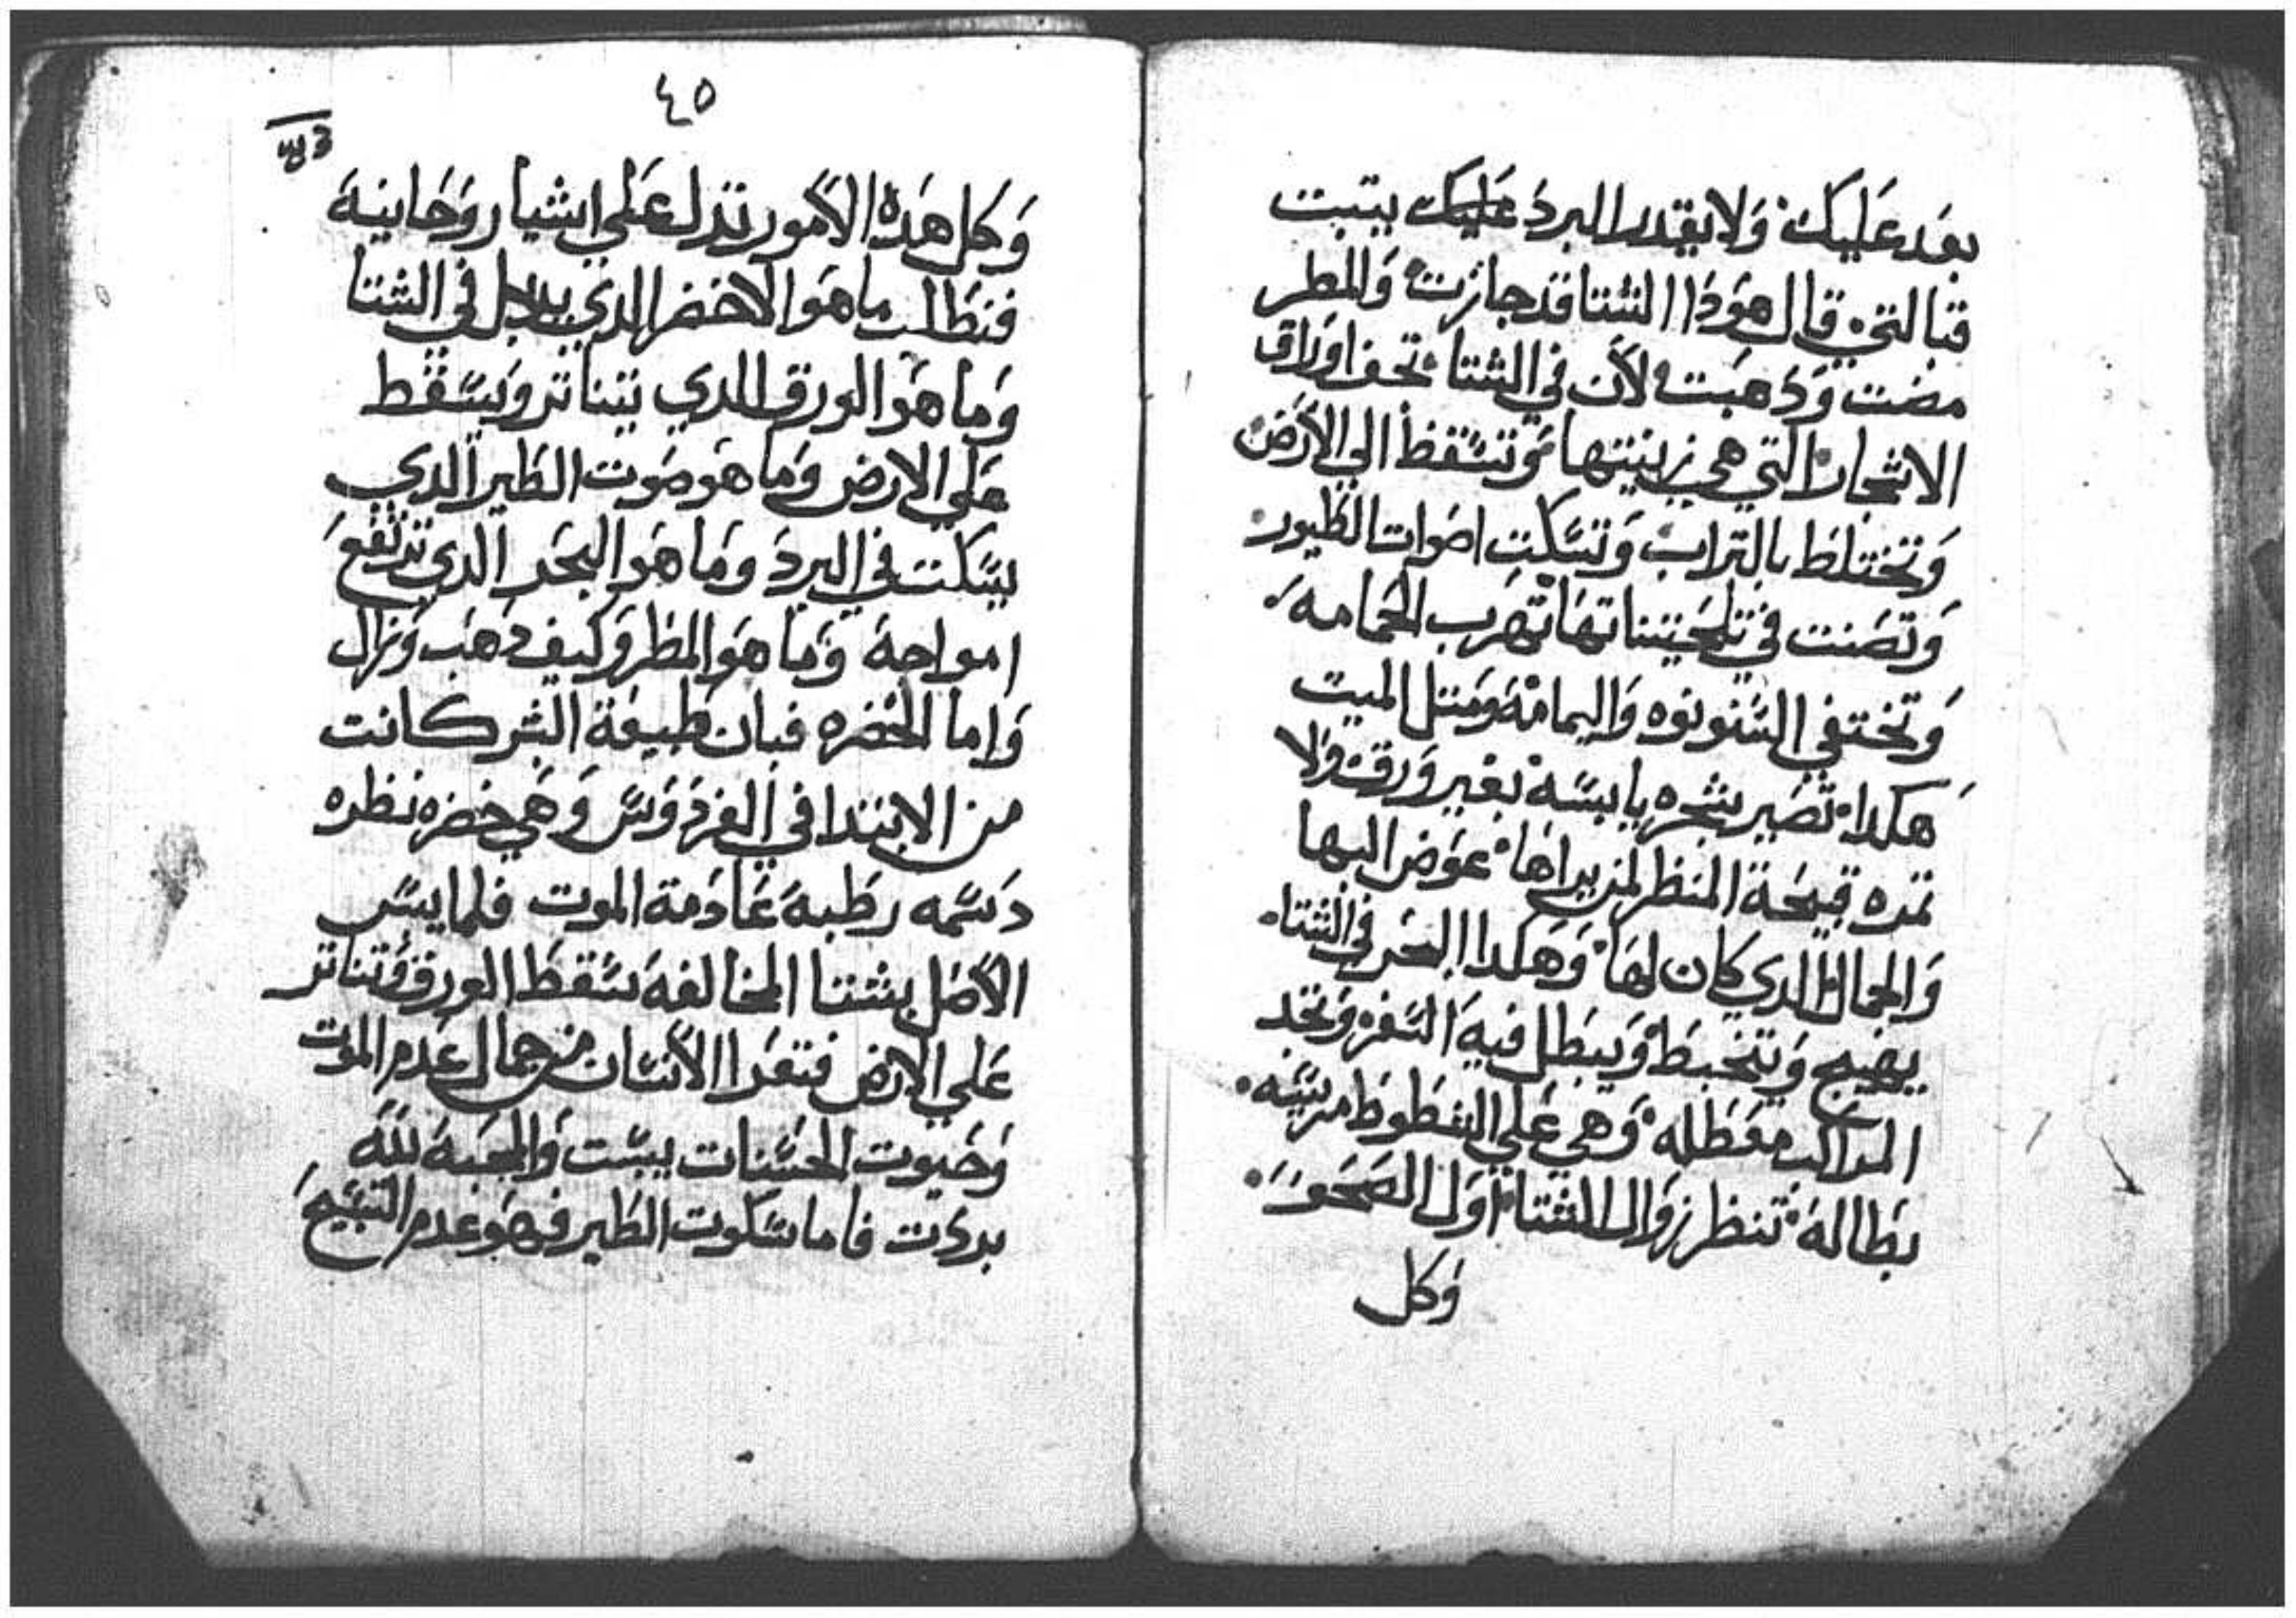 بعد عليك ولا يقدر البرد عليك يتبت
قبالتي قال هودا الشتا قد جازت والمطر
مضت ودهبت لان في الشتا تجف اوراق
الاشجار التي هي زينتها وتسقط الي الارض
وتختلط بالتراب وتسكت اصوات الطيور
وتصنت في تلحيناتها تهرب الحمامه
وتختفي السنونوه واليمامه ومتل الميت
هكدا تصير شجره يابسه بغير ورق ولا
تمره قبيحة المنظر لمن يراها عوض البها
والجمال الدي كان لها وهكدا البحر في الشتا
يهيج ويتخبط ويبطل فيه السفره وتجد
المراكب معطله وهي علي الشطوط مرسيه
بطاله تنظر زوال الشتا اول الصحو
وكل
٤٥
وكل هده الامور تدل علي اشيا روحانيه
فنطلب ما هو الاخضر الدي يدبل في الشتا
وما هو الورق الدي يتناتر ويسقط
علي الارض وما هو صوت الطير الدي
يسكت في البرد وما هو البحر الدي ترتفع
امواجه وما هو المطر وكيف دهب وزال
واما الخضره فبان طبيعة البشر كانت
من الابتدا في الفردوس وهي خضره نظره
دسمه رطبه عادمة الموت فلما يبس
الاصل بشتا المخالفه سقط الورق وتناتر
علي الارض فتعرا الانسان من جمال عدم الموت
وحيوت الحسنات يبست والمحبه لله
بردت فاما سكوت الطير فهو عدم التسبيح